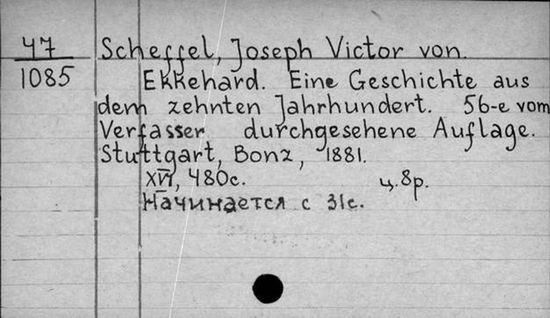 47
1085
Scheffel, Joseph Victor von.
Ekkehard. Eine Geschichte aus
dem zehnten Jahrhundert. 56-e vom
Verfasser durchgesehene Auflage.
Stuttgart, Bonz, 1881.
XVI, 480c. ц.8р.
Начинается с 31с.